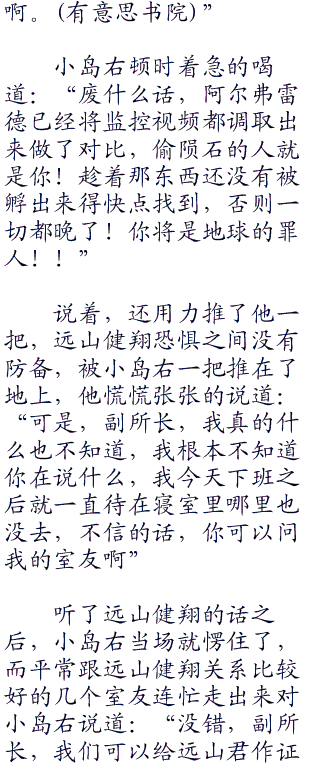 啊。(有意思书院)”
小岛右顿时着急的喝
道：“废什么话，阿尔弗雷
德已经将监控视频都调取出
来做了对比，偷陨石的人就
是你！趁着那东西还没有被
孵出来得快点找到，否则一
切都晚了！你将是地球的罪
人！！”
说着，还用力推了他一
把，远山健翔恐惧之间没有
防备，被小岛右一把推在了
地上，他慌慌张张的说道：
“可是，副所长，我真的什
么也不知道，我根本不知道
你在说什么，我今天下班之
后就一直待在寝室里哪里也
没去，不信的话，你可以问
我的室友啊”
听了远山健翔的话之
后，小岛右当场就愣住了，
而平常跟远山健翔关系比较
好的几个室友连忙走出来对
小岛右说道：“没错，副所
长，我们可以给远山君作证